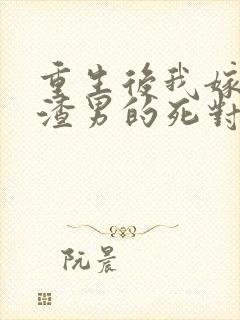 重生後我嫁
渣男的死對
阮晨